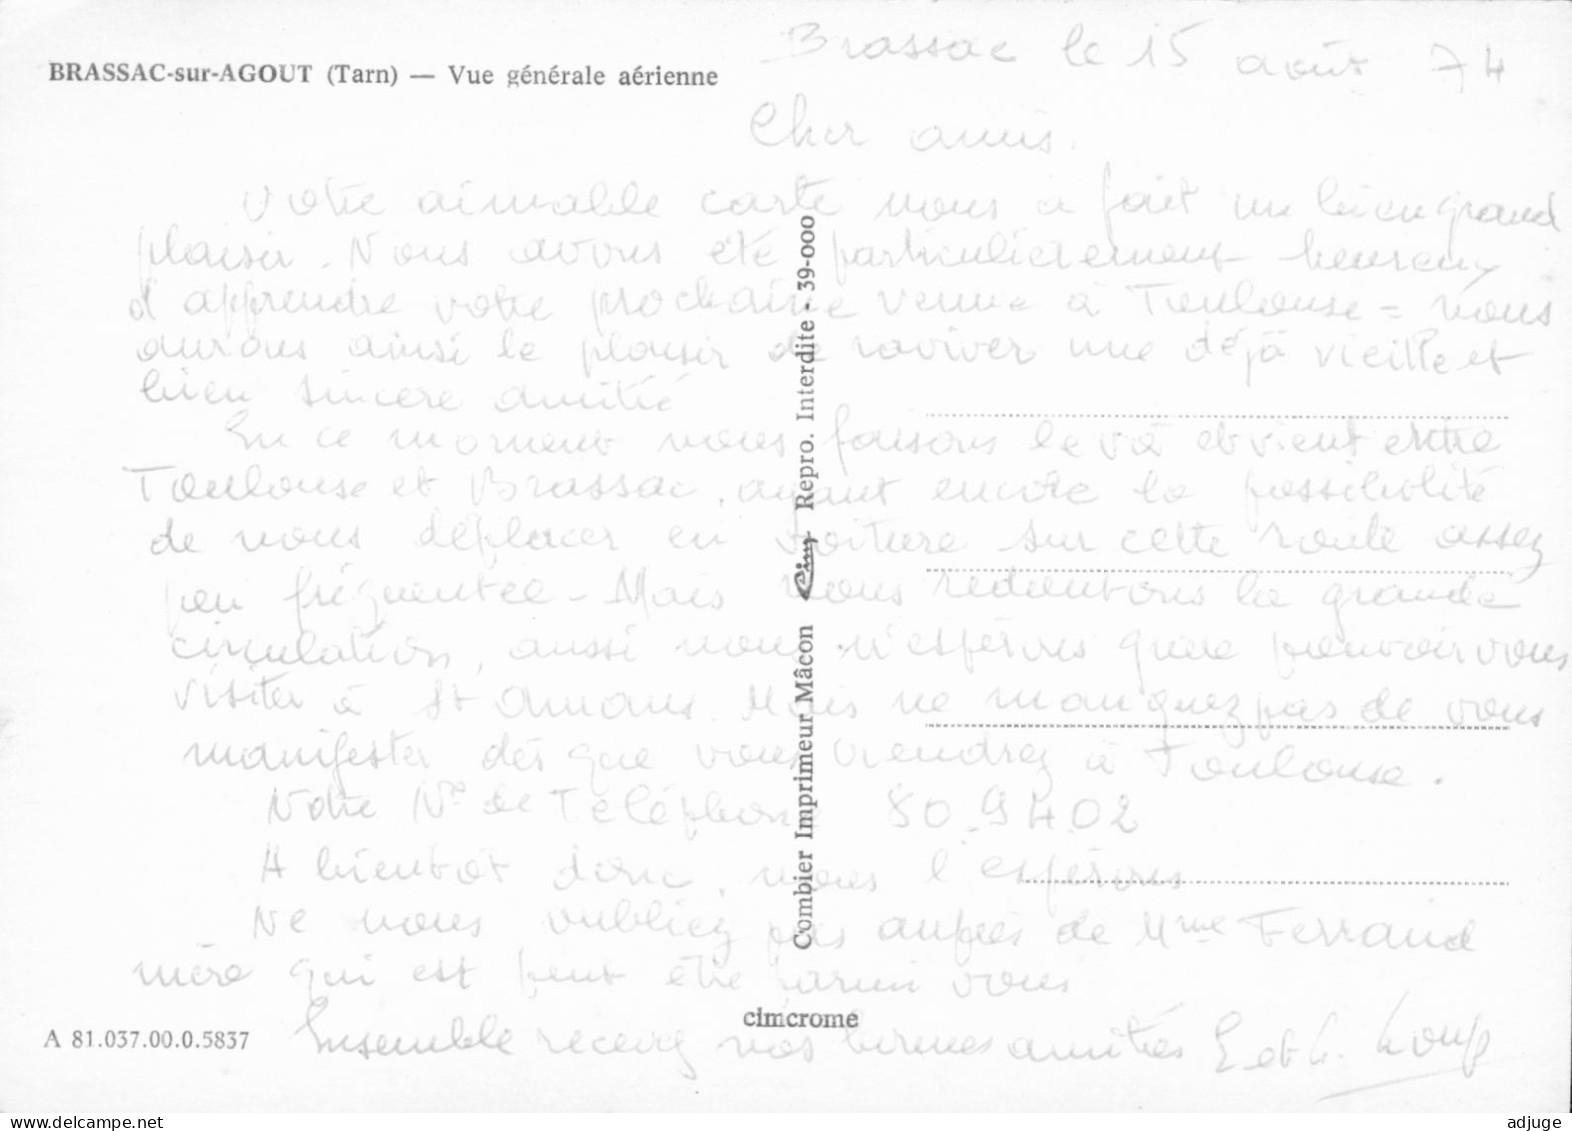 BRASSAC-sur-AGOUT (Tarn) — Vue générale aérienne
Brassac le 15 août 74
Cher amis.
Votre aimable carte nous a fait un bien grand
plaisir. Nous avons été particulièrement heureux
d'apprendre votre prochaine venue à Toulouse = nous
aurons ainsi le plaisir de raviver une déjà vieille et
bien sincère amitié
En ce moment nous faisons le va et vient entre
Toulouse et Brassac, ayant encore la possibilité
de nous déplacer en voiture sur cette route assez
peu fréquentée - Mais nous redoutons la grande
circulation, aussi nous n'espérons guère pouvoir vous
visiter à St Amans. Mais ne manquez pas de vous
manifester dès que vous viendrez à Toulouse.
Notre N° de Téléphone 80.94.02
A bientôt donc, nous l'espérons
Ne nous oubliez pas auprès de Mme Ferraud
mère qui est peut être parmi vous
Ensemble recevez nos bonnes amitiés E et L. Loup
Combier Imprimeur Mâcon Cim Repro. Interdite - 39-000
cimcrome
A 81.037.00.0.5837
adjuge